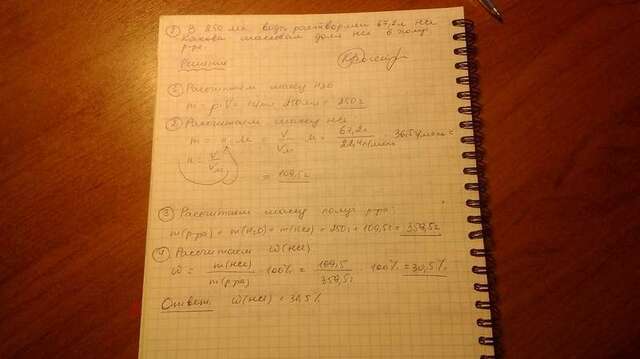 ② В 250 мл воды растворили 67,2 л HCl
Какова массовая доля HCl в получ
р-ра.
Решение
① Рассчитаем массу H2O
m = ρ·V = 1г/мл · 250мл = 250г
② Рассчитаем массу HCl
m = n · M = V/Vм · M = 67,2л / 22,4л/моль · 36,5г/моль =
n = V/Vм
= 109,5г
③ Рассчитаем массу получ р-ра:
m(р-ра) = m(H2O) + m(HCl) = 250г + 109,5г = 359,5г
④ Рассчитаем ω(HCl)
ω = m(HCl) / m(р-ра) · 100% = 109,5 / 359,5г · 100% = 30,5%
Ответ: ω(HCl) = 30,5%